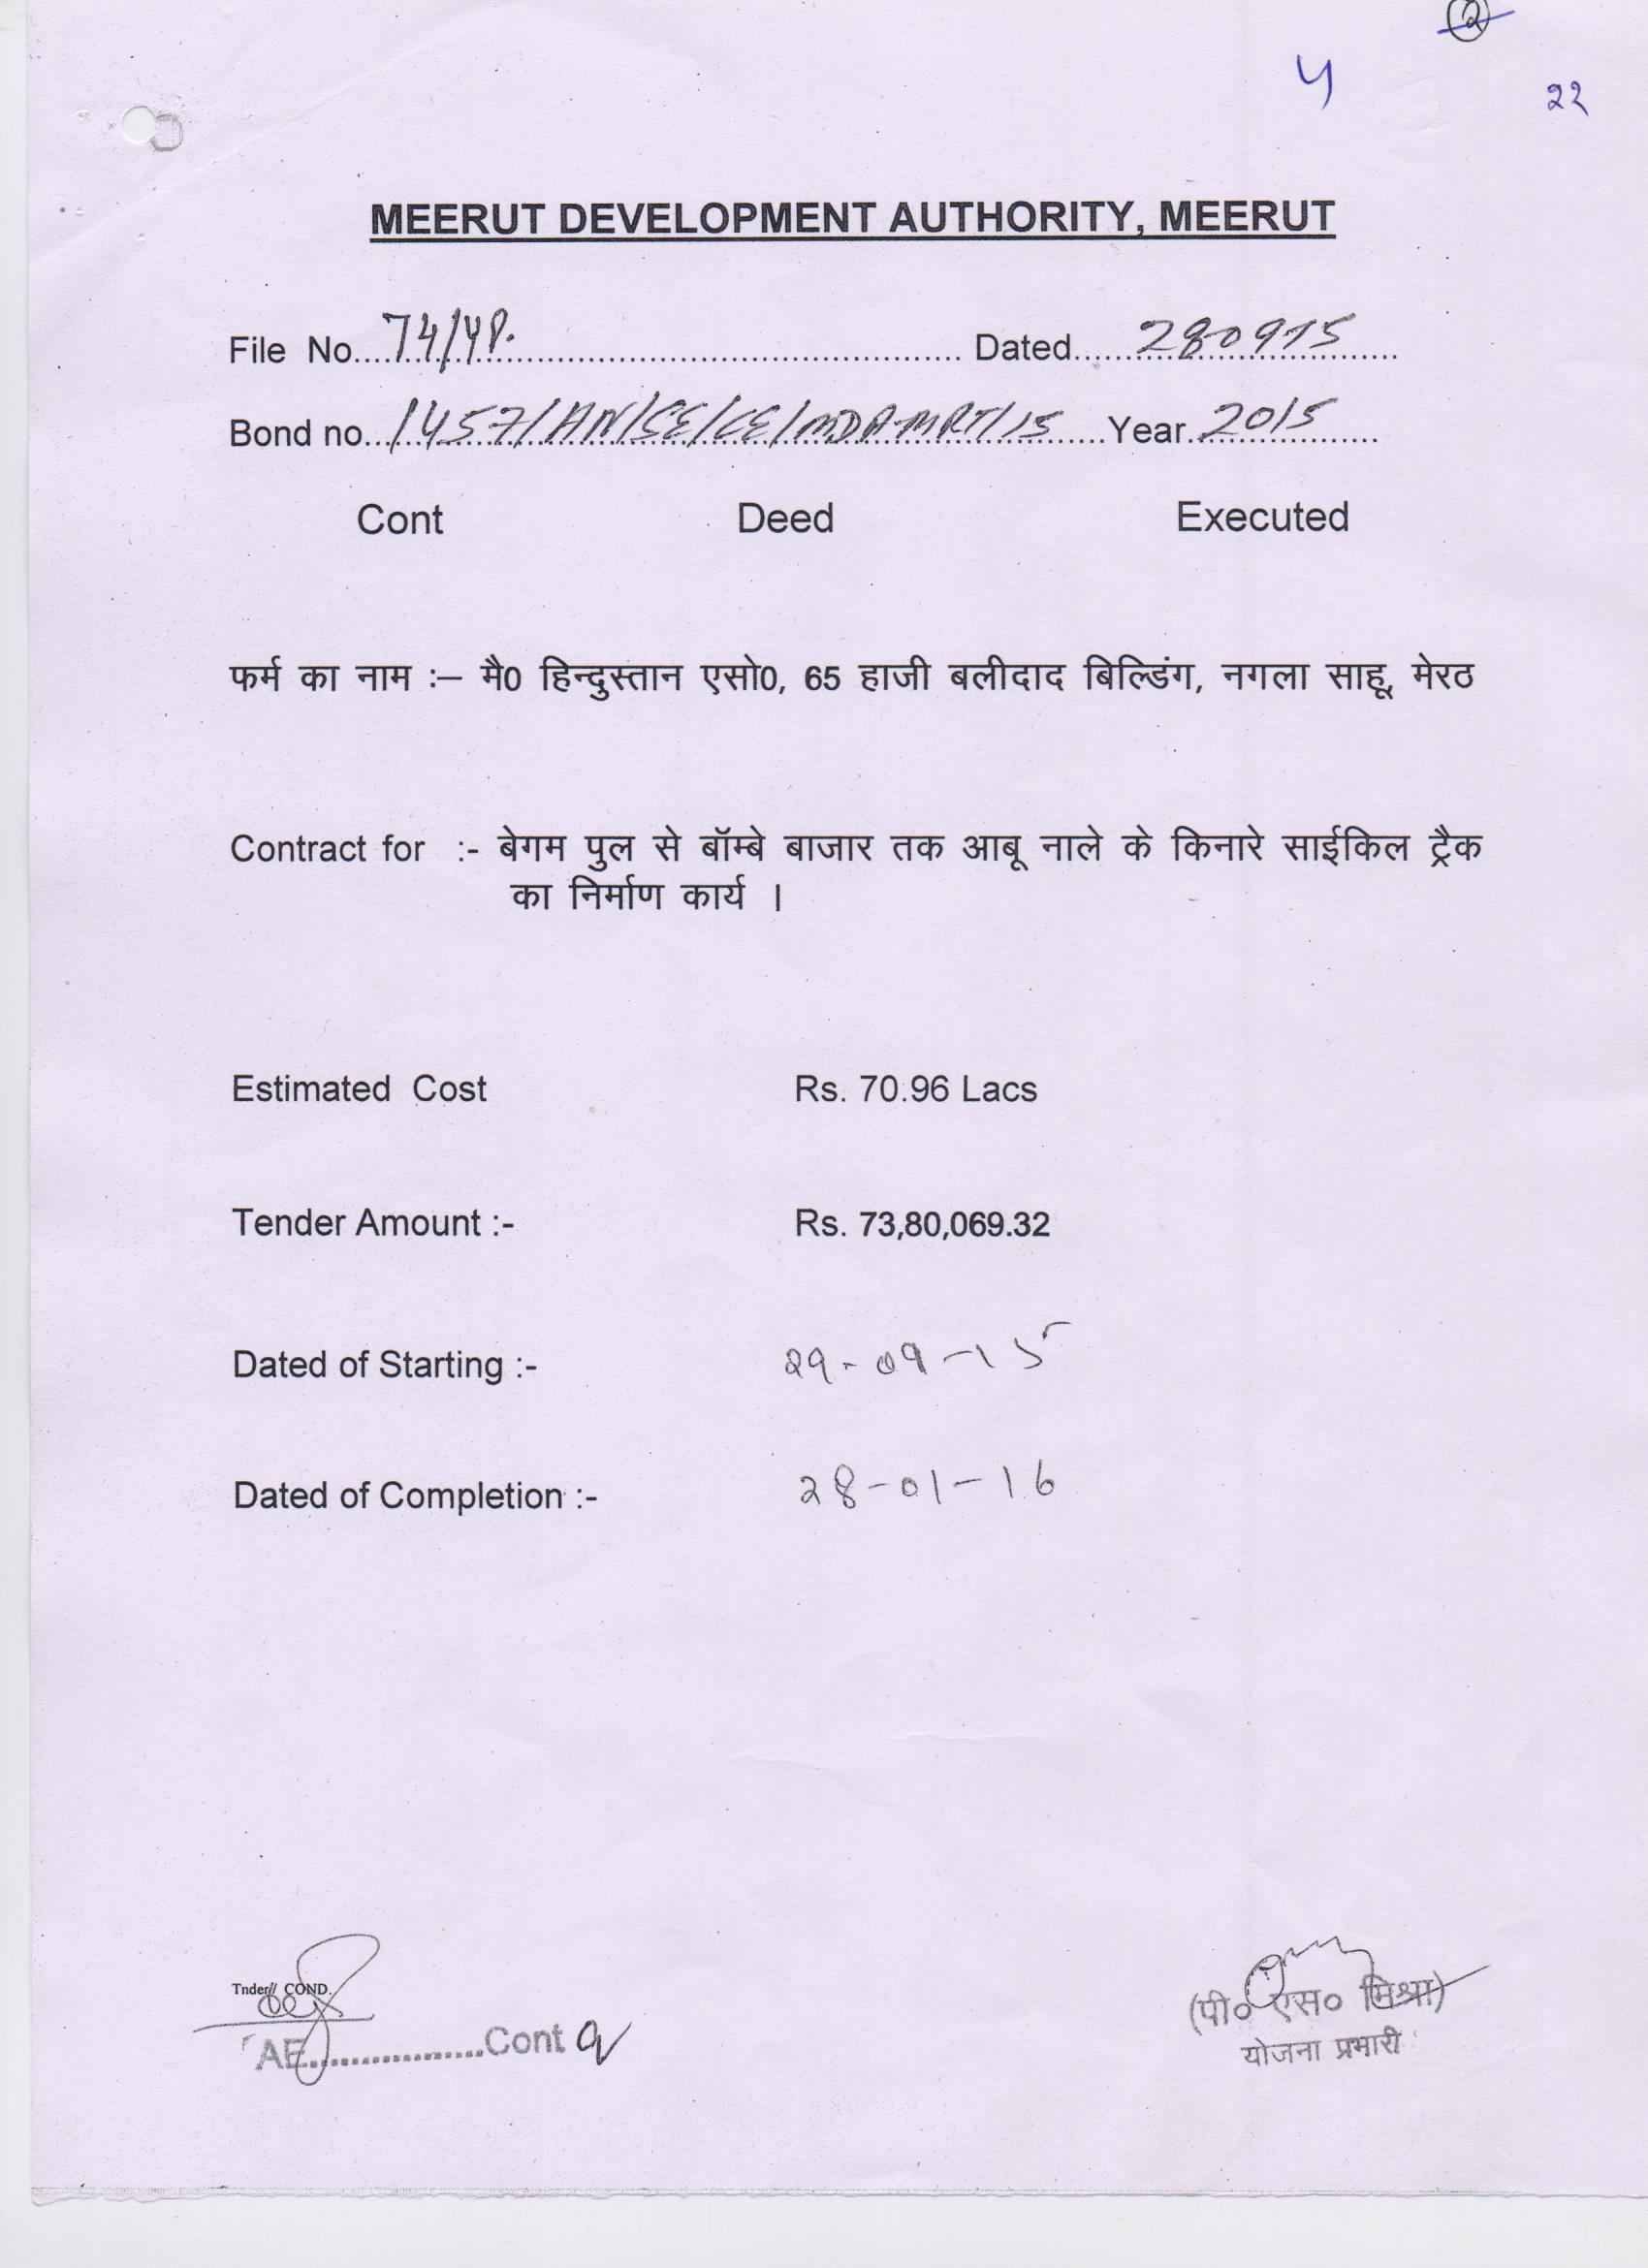 २
4
२२
MEERUT DEVELOPMENT AUTHORITY, MEERUT
File No....74/YP...... Dated......280915......
Bond no...1457/AN/SE/CE/MDA-MRT/15......Year..2015......
Cont Deed Executed
फर्म का नाम :– मै0 हिन्दुस्तान एसो0, 65 हाजी बलीदाद बिल्डिंग, नगला साहू, मेरठ
Contract for :- बेगम पुल से बॉम्बे बाजार तक आबू नाले के किनारे साईकिल ट्रैक
का निर्माण कार्य ।
Estimated Cost Rs. 70.96 Lacs
Tender Amount :- Rs. 73,80,069.32
Dated of Starting :- 29-09-15
Dated of Completion :- 28-01-16
Tnder// COND.
AE..................Cont
(पी० एस० मिश्रा)
योजना प्रभारी